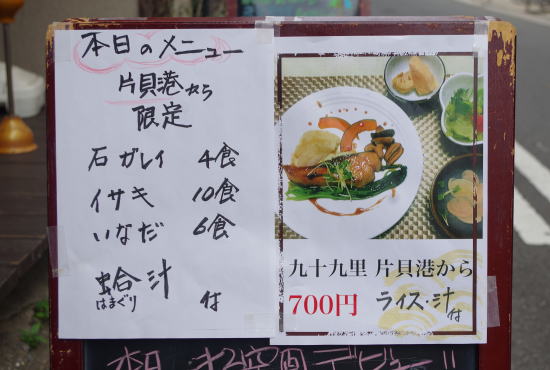 本日のメニュー
片貝港から
限定
石ガレイ 4食
イサキ 10食
いなだ 6食
蛤汁 付
はまぐり
九十九里 片貝港から
700円 ライス・汁付
本日